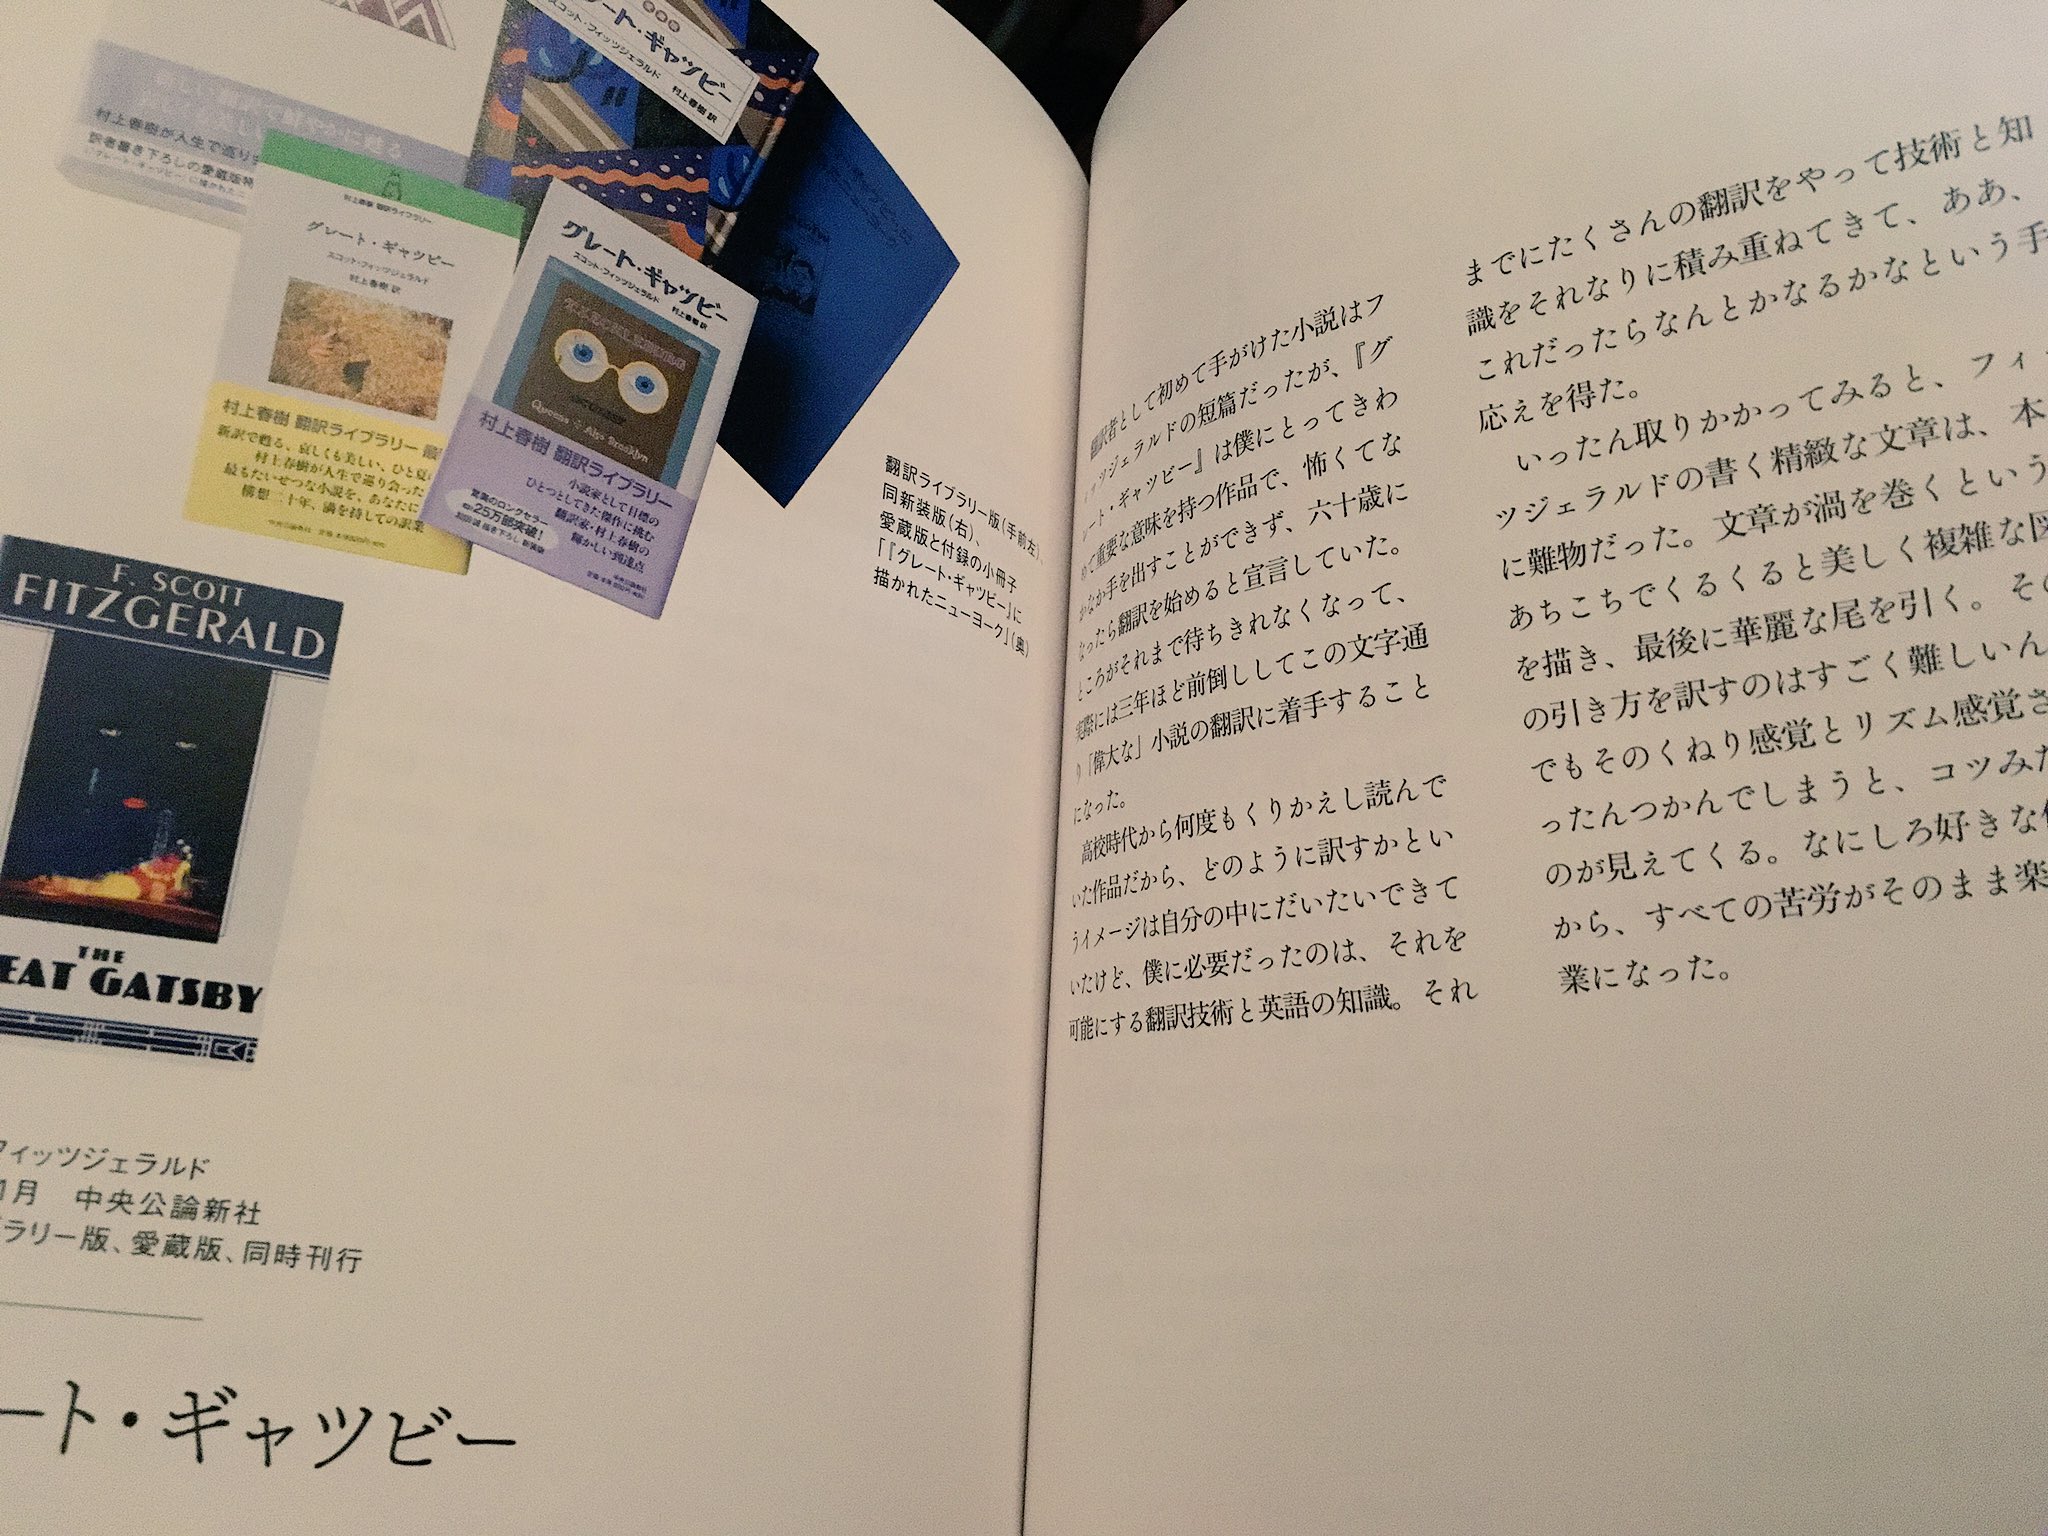 グレート・ギャツビー
スコット・フィッツジェラルド
村上春樹 訳
村上春樹が人生で巡り
訳者書き下ろしの愛蔵版特
村上春樹 翻訳ライブラリー
グレート・ギャツビー
スコット・フィッツジェラルド
村上春樹 訳
村上春樹 翻訳ライブラリー 最
新訳で甦る、哀しくも美しい、ひと夏
村上春樹が人生で巡り会った
最もたいせつな小説を、あなたに
構想二十年、満を持しての訳業
中央公論新社
グレート・ギャツビー
スコット・フィッツジェラルド
村上春樹 訳
Queens & Also Brooklyn
村上春樹 翻訳ライブラリー
小説家として目標の
ひとつとしてきた傑作に挑む
翻訳家・村上春樹の
輝かしい到達点
驚異のロングセラー
25万部突破！
新装版
中央公論新社
翻訳ライブラリー版（手前左）、
同新装版（右）、
愛蔵版と付録の小冊子
「『グレート・ギャツビー』に
描かれたニューヨーク」（奥）
F. SCOTT
FITZGERALD
THE
EAT GATSBY
フィッツジェラルド
1月　中央公論新社
ブラリー版、愛蔵版、同時刊行
ート・ギャツビー
翻訳者として初めて手がけた小説はフ
ィッツジェラルドの短篇だったが、『グ
レート・ギャツビー』は僕にとってきわ
めて重要な意味を持つ作品で、怖くてな
かなか手を出すことができず、六十歳に
なったら翻訳を始めると宣言していた。
ところがそれまで待ちきれなくなって、
実際には三年ほど前倒ししてこの文字通
り「偉大な」小説の翻訳に着手すること
になった。
高校時代から何度もくりかえし読んで
いた作品だから、どのように訳すかとい
うイメージは自分の中にだいたいできて
いたけど、僕に必要だったのは、それを
可能にする翻訳技術と英語の知識。それ
までにたくさんの翻訳をやって技術と知
識をそれなりに積み重ねてきて、ああ、
これだったらなんとかなるかなという手
応えを得た。
いったん取りかかってみると、フィ
ツジェラルドの書く精緻な文章は、本
に難物だった。文章が渦を巻くという
あちこちでくるくると美しく複雑な図
を描き、最後に華麗な尾を引く。その
の引き方を訳すのはすごく難しいん
でもそのくねり感覚とリズム感覚さ
ったんつかんでしまうと、コツみた
のが見えてくる。なにしろ好きな作
から、すべての苦労がそのまま楽
業になった。